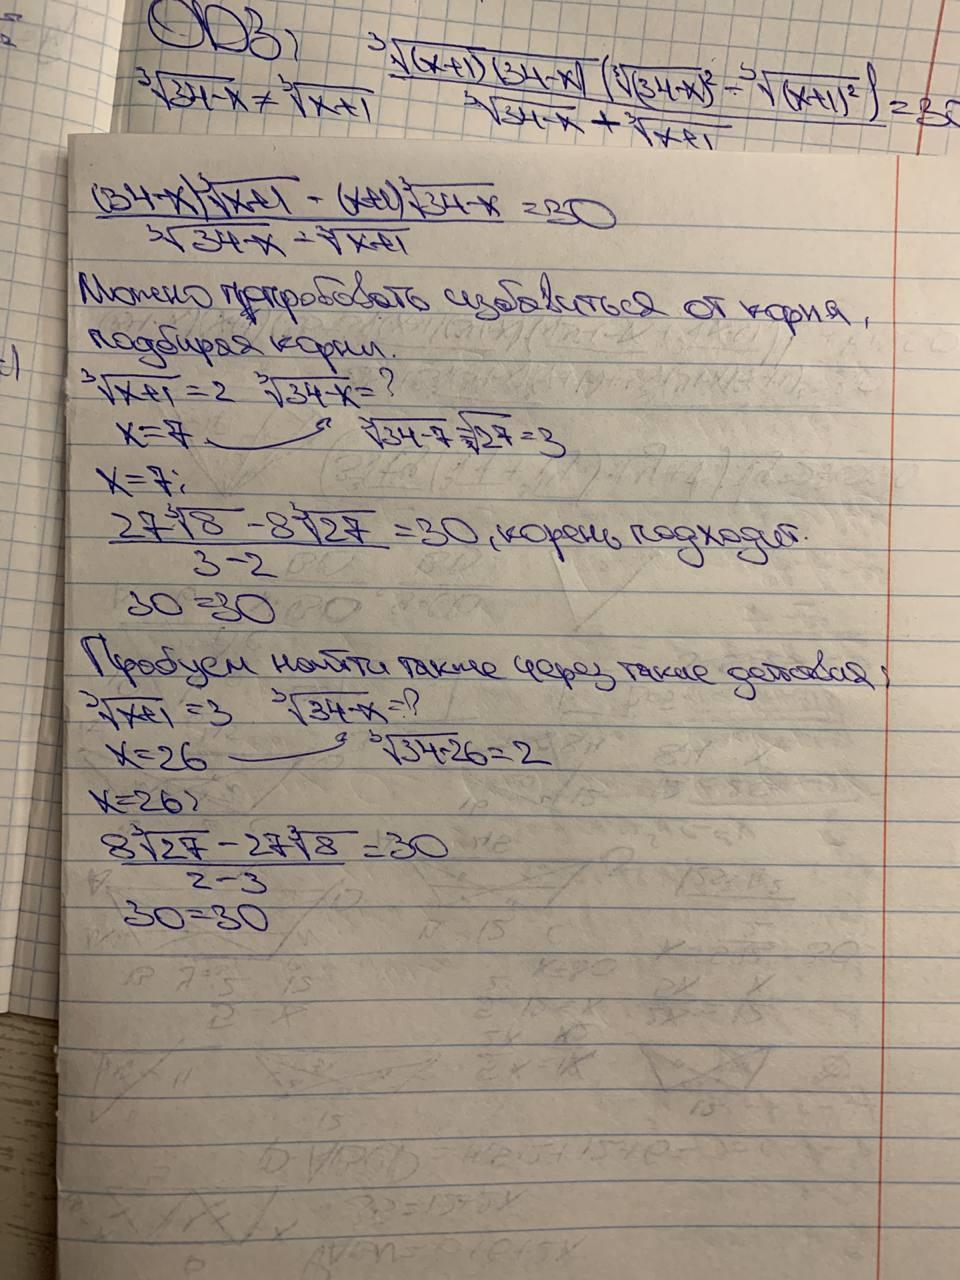 ОДЗ:
∛(34-x) ≠ ∛(x+1)
∛((x+1)(34-x)) (∛(34-x)² - ∛(x+1)²) / (∛(34-x) + ∛(x+1)) = 30
((34-x)∛(x+1) - (x+1)∛(34-x)) / (∛(34-x) - ∛(x+1)) = 30
Можно попробовать избавиться от корня,
подбирая корни.
∛(x+1) = 2 ∛(34-x) = ?
x=7 ∛(34-7) = ∛27 = 3
x=7:
(27∛8 - 8∛27) / (3-2) = 30, корень подходит.
30=30
Пробуем найти такие через такие
∛(x+1) = 3 ∛(34-x) = ?
x=26 ∛(34-26) = 2
x=26:
(8∛27 - 27∛8) / (2-3) = 30
30=30